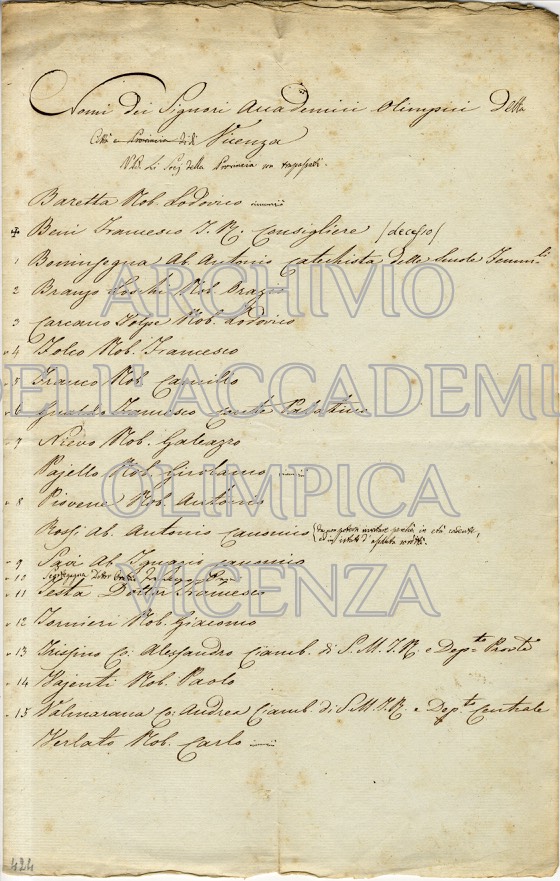 Nomi dei Signori Accademici Olimpici della
Città e Provincia di Vicenza
NB. Li Socj della Provincia
Baretta Nob. Lodovico
✠ Beni Francesco I. R. Consigliere (decesso)
1 Boninsegna Ab. Antonio Catechista delle Scuole Femm.li
2 Branzo Loschi Nob. Orazio
3 Carcano Volpe Nob. Lodovico
4 Folco Nob. Francesco
5 Franco Nob. Camillo
6 Gualdo Francesco Conte Palatino
7 Nievo Nob. Galeazzo
Pajello Nob. Girolamo
8 Piovene Nob. Antonio
Rossi Ab. Antonio Canonico
9 Savi Ab. Ignazio canonico
10
11 Testa Dottor Francesco
12 Tornieri Nob. Giacomo
13 Trissino Co: Alessandro Ciamb. di S. M. I. R. e Dep.to Prov.le
14 Vajenti Nob. Paolo
15 Valmarana Co: Andrea Ciamb. di S. M. I. R. e Dep.to Centrale
Verlato Nob. Carlo
424
ARCHIVIO
DELL'ACCADEMIA
OLIMPICA
VICENZA